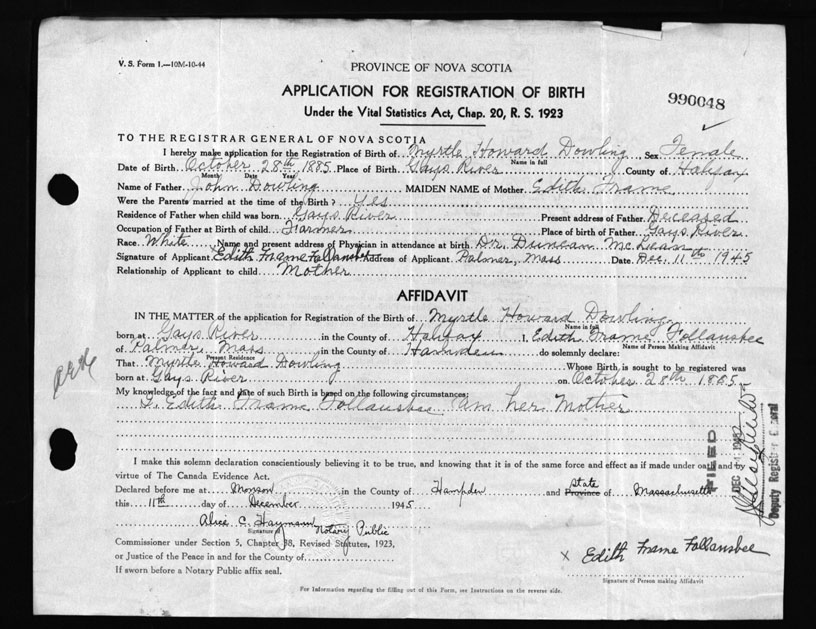 V. S. Form 1.—10M-10-44
PROVINCE OF NOVA SCOTIA
APPLICATION FOR REGISTRATION OF BIRTH
Under the Vital Statistics Act, Chap. 20, R. S. 1923
990048
TO THE REGISTRAR GENERAL OF NOVA SCOTIA
I hereby make application for the Registration of Birth of Myrtle Howard Dowling Sex Female
Name in full
Date of Birth October 28th 1885 Place of Birth Gays River County of Halifax
Month Date Year
Name of Father John Dowling MAIDEN NAME of Mother Edith Frame
Were the Parents married at the time of the Birth? Yes
Residence of Father when child was born Gays River Present address of Father Deceased
Occupation of Father at Birth of child Farmer Place of birth of Father Gays River
Race White Name and present address of Physician in attendance at birth Dr. Duncan McLean
Signature of Applicant Edith Frame Follansbee Address of Applicant Palmer, Mass Date Dec. 11th 1945
Relationship of Applicant to child Mother
AFFIDAVIT
IN THE MATTER of the application for Registration of the Birth of Myrtle Howard Dowling
Name in full
born at Gays River in the County of Halifax I, Edith Frame Follansbee
Name of Person Making Affidavit
of Palmer, Mass in the County of Hamden do solemnly declare:
Present Residence
That Myrtle Howard Dowling Whose Birth is sought to be registered was
born at Gays River on October 28th 1885
My knowledge of the fact and date of such Birth is based on the following circumstances:
I, Edith Frame Follansbee am her Mother
I make this solemn declaration conscientiously believing it to be true, and knowing that it is of the same force and effect as if made under oath and by
virtue of The Canada Evidence Act.
Declared before me at Monson in the County of Hampden and State Province of Massachusetts
this 11th day of December 1945
Alice C. Haymann Notary Public
Signature of
Commissioner under Section 5, Chapter 38, Revised Statutes, 1923,
or Justice of the Peace in and for the County of
If sworn before a Notary Public affix seal.
x Edith Frame Follansbee
Signature of Person making Affidavit
For Information regarding the filling out of this Form, see Instructions on the reverse side.
FILED
DEC
Deputy Registrar General